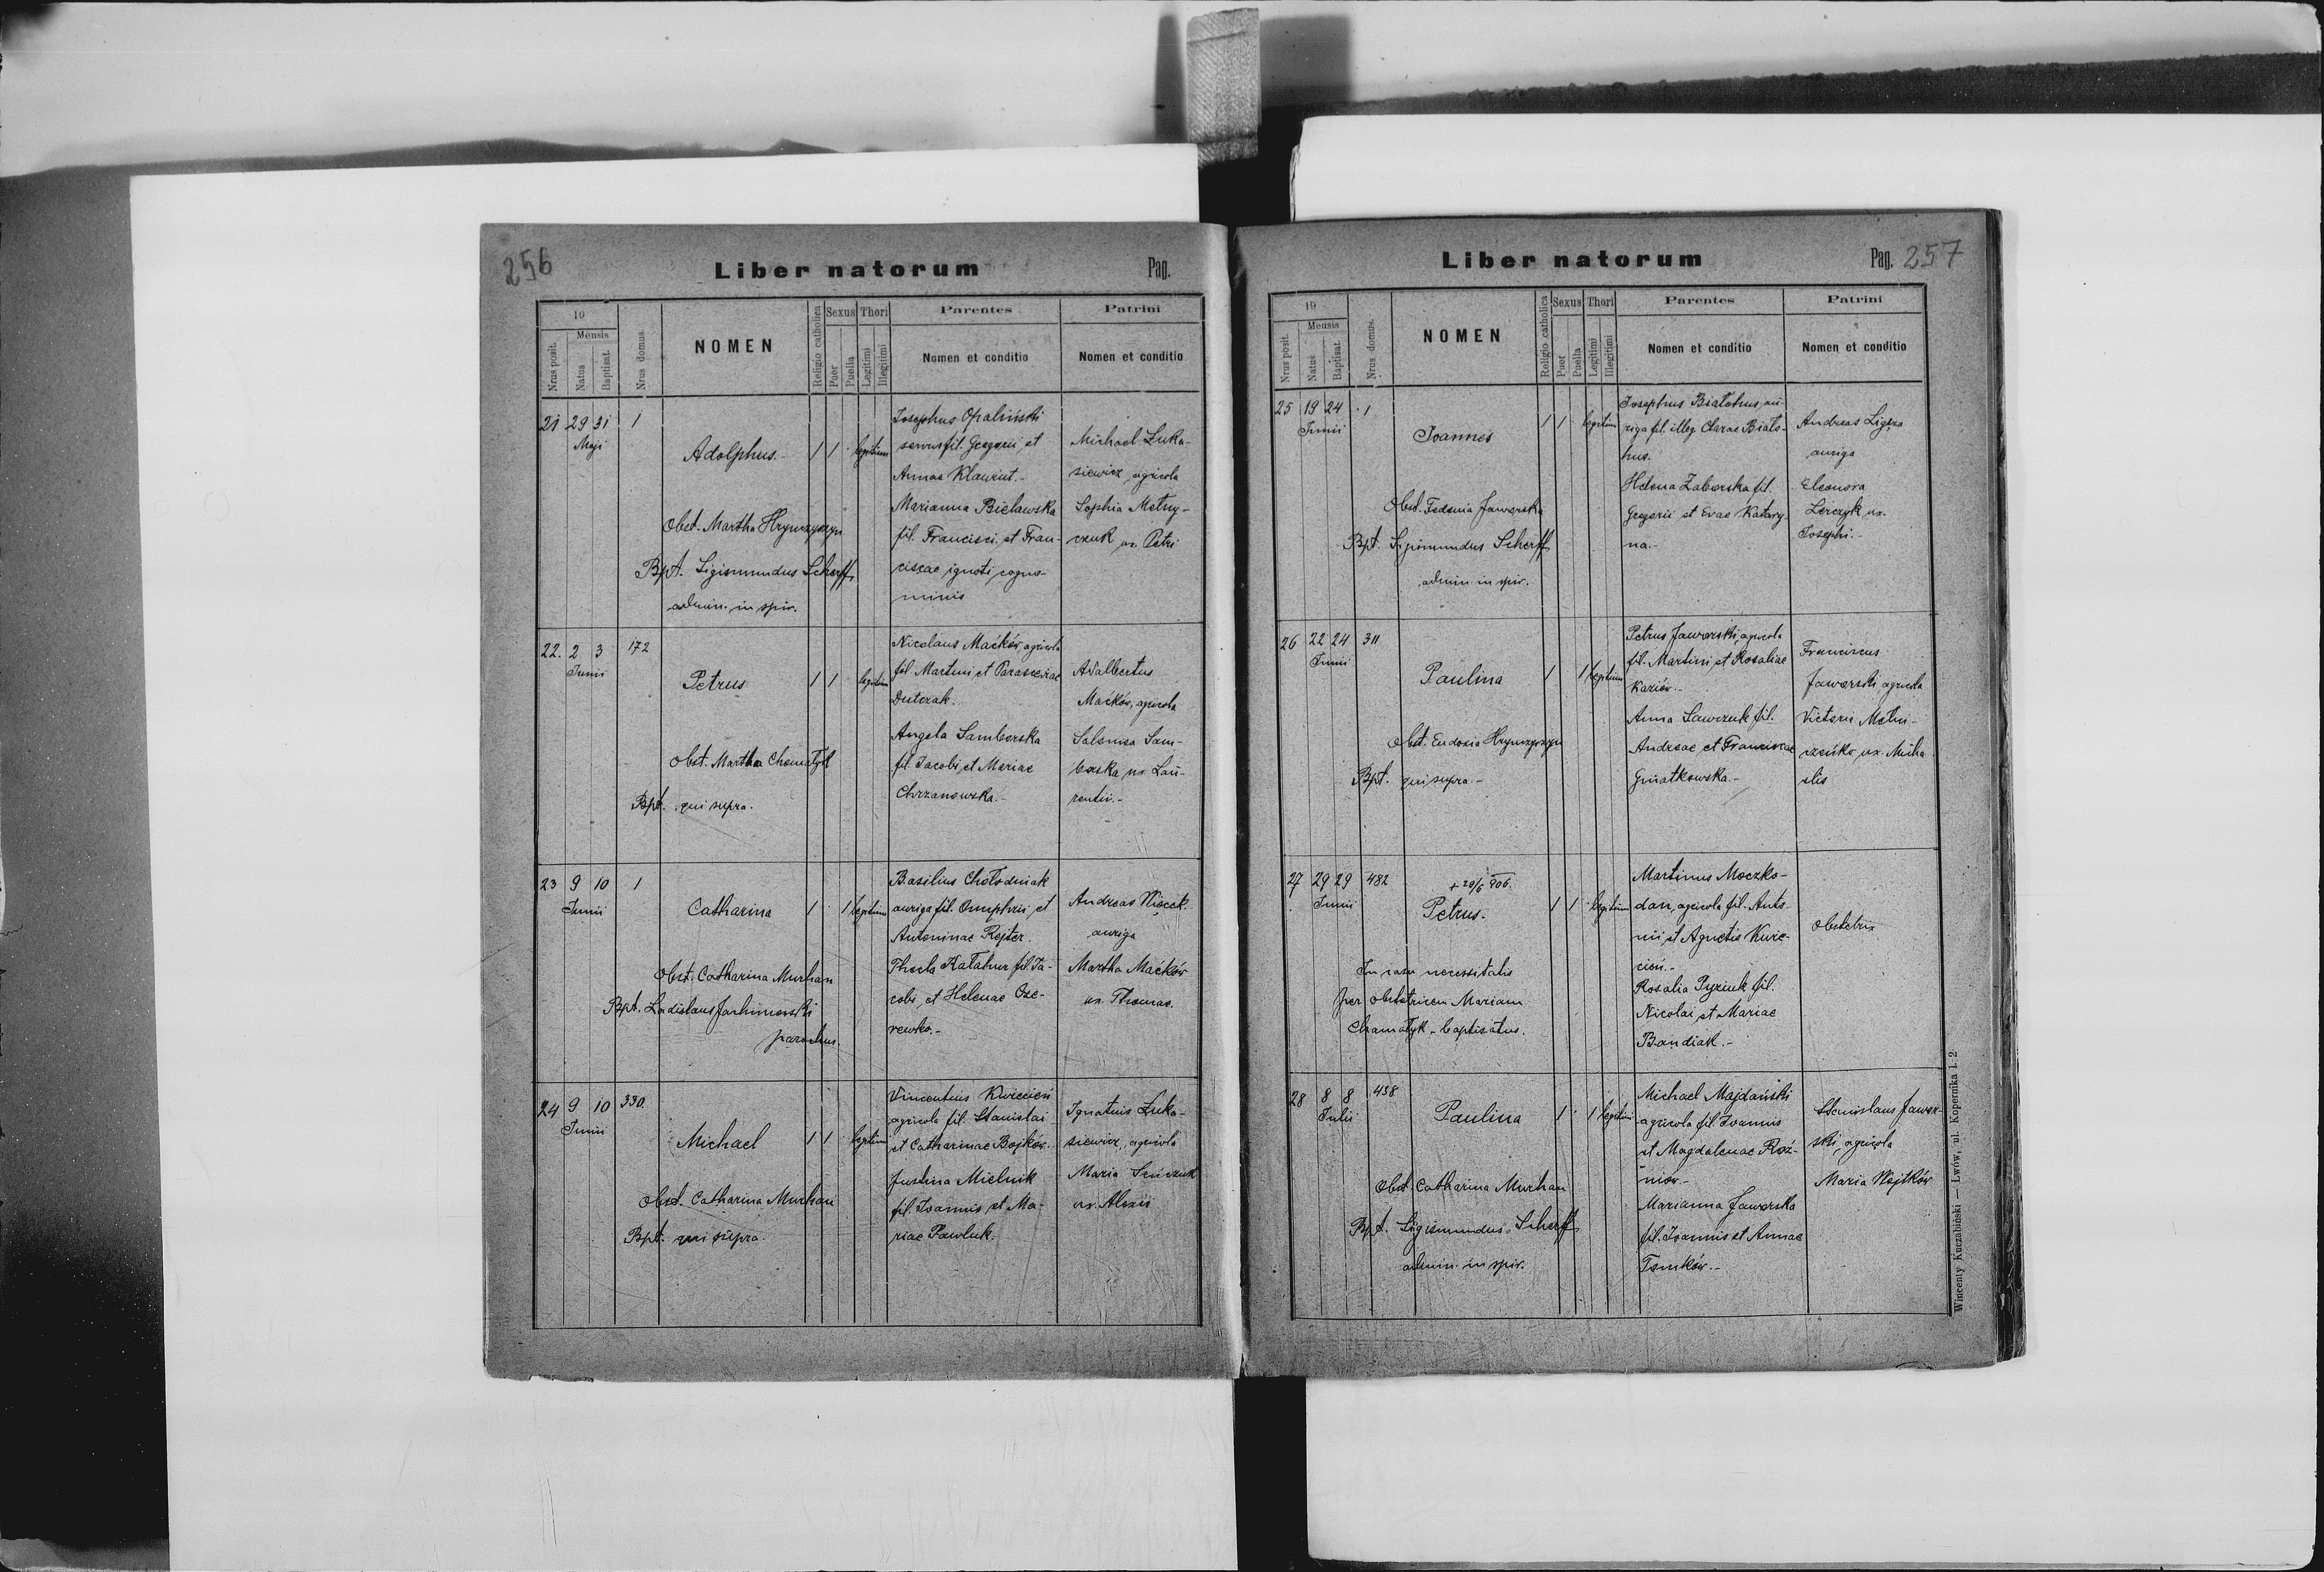 256
Liber natorum
Pag.
19
Mensis
Nrus posit.
Natus
Baptisat.
Nrus domus.
NOMEN
Religio catholica
Sexus
Puer
Puella
Thori
Legitimi
Illegitimi
Parentes
Nomen et conditio
Patrini
Nomen et conditio
21 29 31 1
Maji
Adolphus.
1 1 legitimi
Obst. Martha Hrynczyszyn
Bpt. Sigismundus Scherff
admin. in spir.
Josephus Opaliński
servus fil. Gregorii et
Annae Klawiut.-
Marianna Bielawska
fil. Francisci et Fran-
ciscae ignoti cogno-
minis
Michael Łuka-
siewicz, agricola
Sophia Metny-
czuk ux. Petri
22. 2 3 172
Junii
Petrus
1 1 legitimi
Obst. Martha Chomatyk
Bpt. qui supra.
Nicolaus Maćków, agricola
fil. Martini et Parasceviae
Dutczak.
Angela Samborska
fil. Jacobi et Mariae
Chrzanowska.-
Adalbertus
Maćków, agricola
Salomea Sam-
borska ux. Lau-
rentii.-
23 9 10 1
Junii
Catharina
1 1 legitimi
Obst. Catharina Murhan
Bpt. Ladislaus Jachimowski
parochus.
Basilius Chołodniak
auriga fil. Onuphrii et
Antoninae Rejter.
Thecla Kałahur fil. Ja-
cobi et Helenae Oze-
rewska.-
Andreas Więcek.
auriga
Martha Maćków
ux. Thomae.
24 9 10 330
Junii
Michael
1 1 legitimi
Obst. Catharina Murhan
Bpt. qui supra.
Vincentius Kwiecień
agricola fil. Stanislai
et Catharinae Bojków.-
Justina Mielnik
fil. Joannis et Ma-
riae Pawluk.
Ignatius Łuka-
siewicz, agricola
Maria Seńczuk
ux. Alexii
Liber natorum
Pag. 257
19
Mensis
Nrus posit.
Natus
Baptisat.
Nrus domus.
NOMEN
Religio catholica
Sexus
Puer
Puella
Thori
Legitimi
Illegitimi
Parentes
Nomen et conditio
Patrini
Nomen et conditio
25 19 24 1
Junii
Joannes
1 1 legitimi
Obst. Fedonia Jaworska
Bpt. Sigismundus Scherff
admin. in spir.
Josephus Białohus, au-
riga fil. illeg. Clarae Biało-
hus.
Helena Zaborska fil.
Gregorii et Evae Katary-
na.-
Andreas Ligęza
auriga
Eleonora
Lorczyk ux.
Josephi.-
26 22 24 311
Junii
Paulina
1 1 legitimi
Obst. Eudosia Hrynczyszyn
Bpt. qui supra.-
Petrus Jaworski, agricola
fil. Martini et Rosaliae
Kariów.-
Anna Sawczuk fil.
Andreae et Franciscae
Gniatkowska.-
Franciscus
Jaworski, agricola
Victoria Metni-
czeńko ux. Micha
elis
27 29 29 482
Junii
+ 29/6 906.
Petrus.
1 1 legitimi
In casu necessitatis
per obstetricem Mariam
Chamatyk - baptisatus.
Martinus Moczko-
dan, agricola fil. Anto-
nii et Agnetis Kwie-
cień.-
Rosalia Pyziuk fil.
Nicolai et Mariae
Bandiak.-
Obstetrix
28 8 8 438
Julii
Paulina
1 1 legitimi
Obst. Catharina Murhan
Bpt. Sigismundus Scherff
admin. in spir.
Michael Majdański
agricola fil. Joannis
et Magdalenae Roż-
niów.-
Marianna Jaworska
fil. Joannis et Annae
Tomków.-
Stanislaus Jawor-
ski, agricola
Maria Wojtków
Wincenty Kuczabiński — Lwów, ul. Kopernika l. 2.